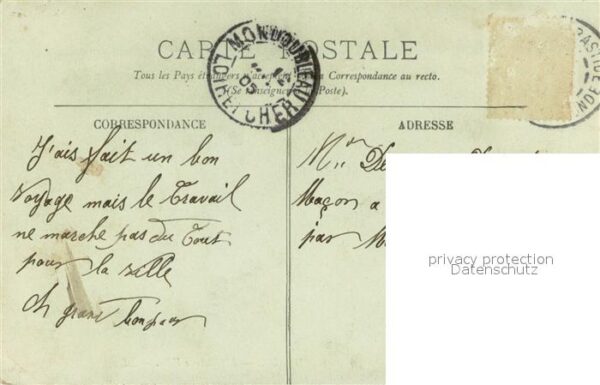 CARTE POSTALE
Tous les Pays étrangers n'acceptent pas la Correspondance au recto.
(Se renseigner à la Poste).
MONDOUBLEAU
LOIR ET CHER
CORRESPONDANCE
J'ais fait un bon
Voyage mais le Travail
ne marche pas du Tout
pour la
grand bonjour
ADRESSE
Maçon a
par M
privacy protection
Datenschutz